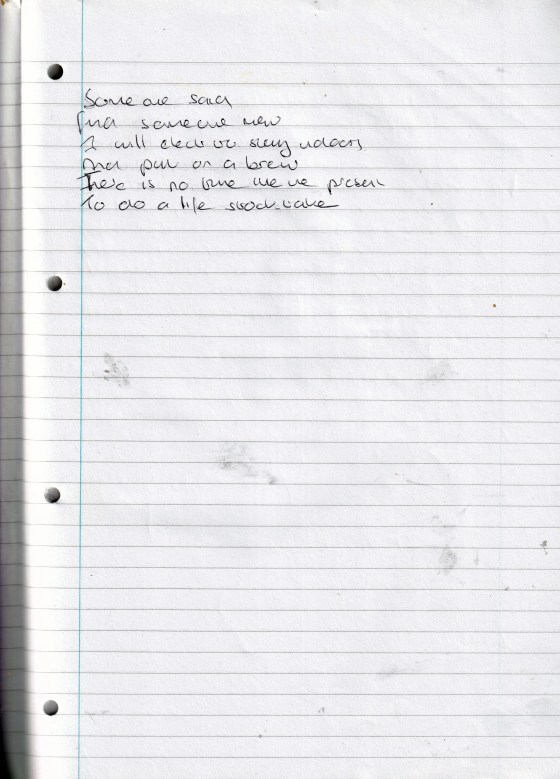 Someone said
Find someone new
I will
And put on a brew
There is no time like the present
To do a life stock-take